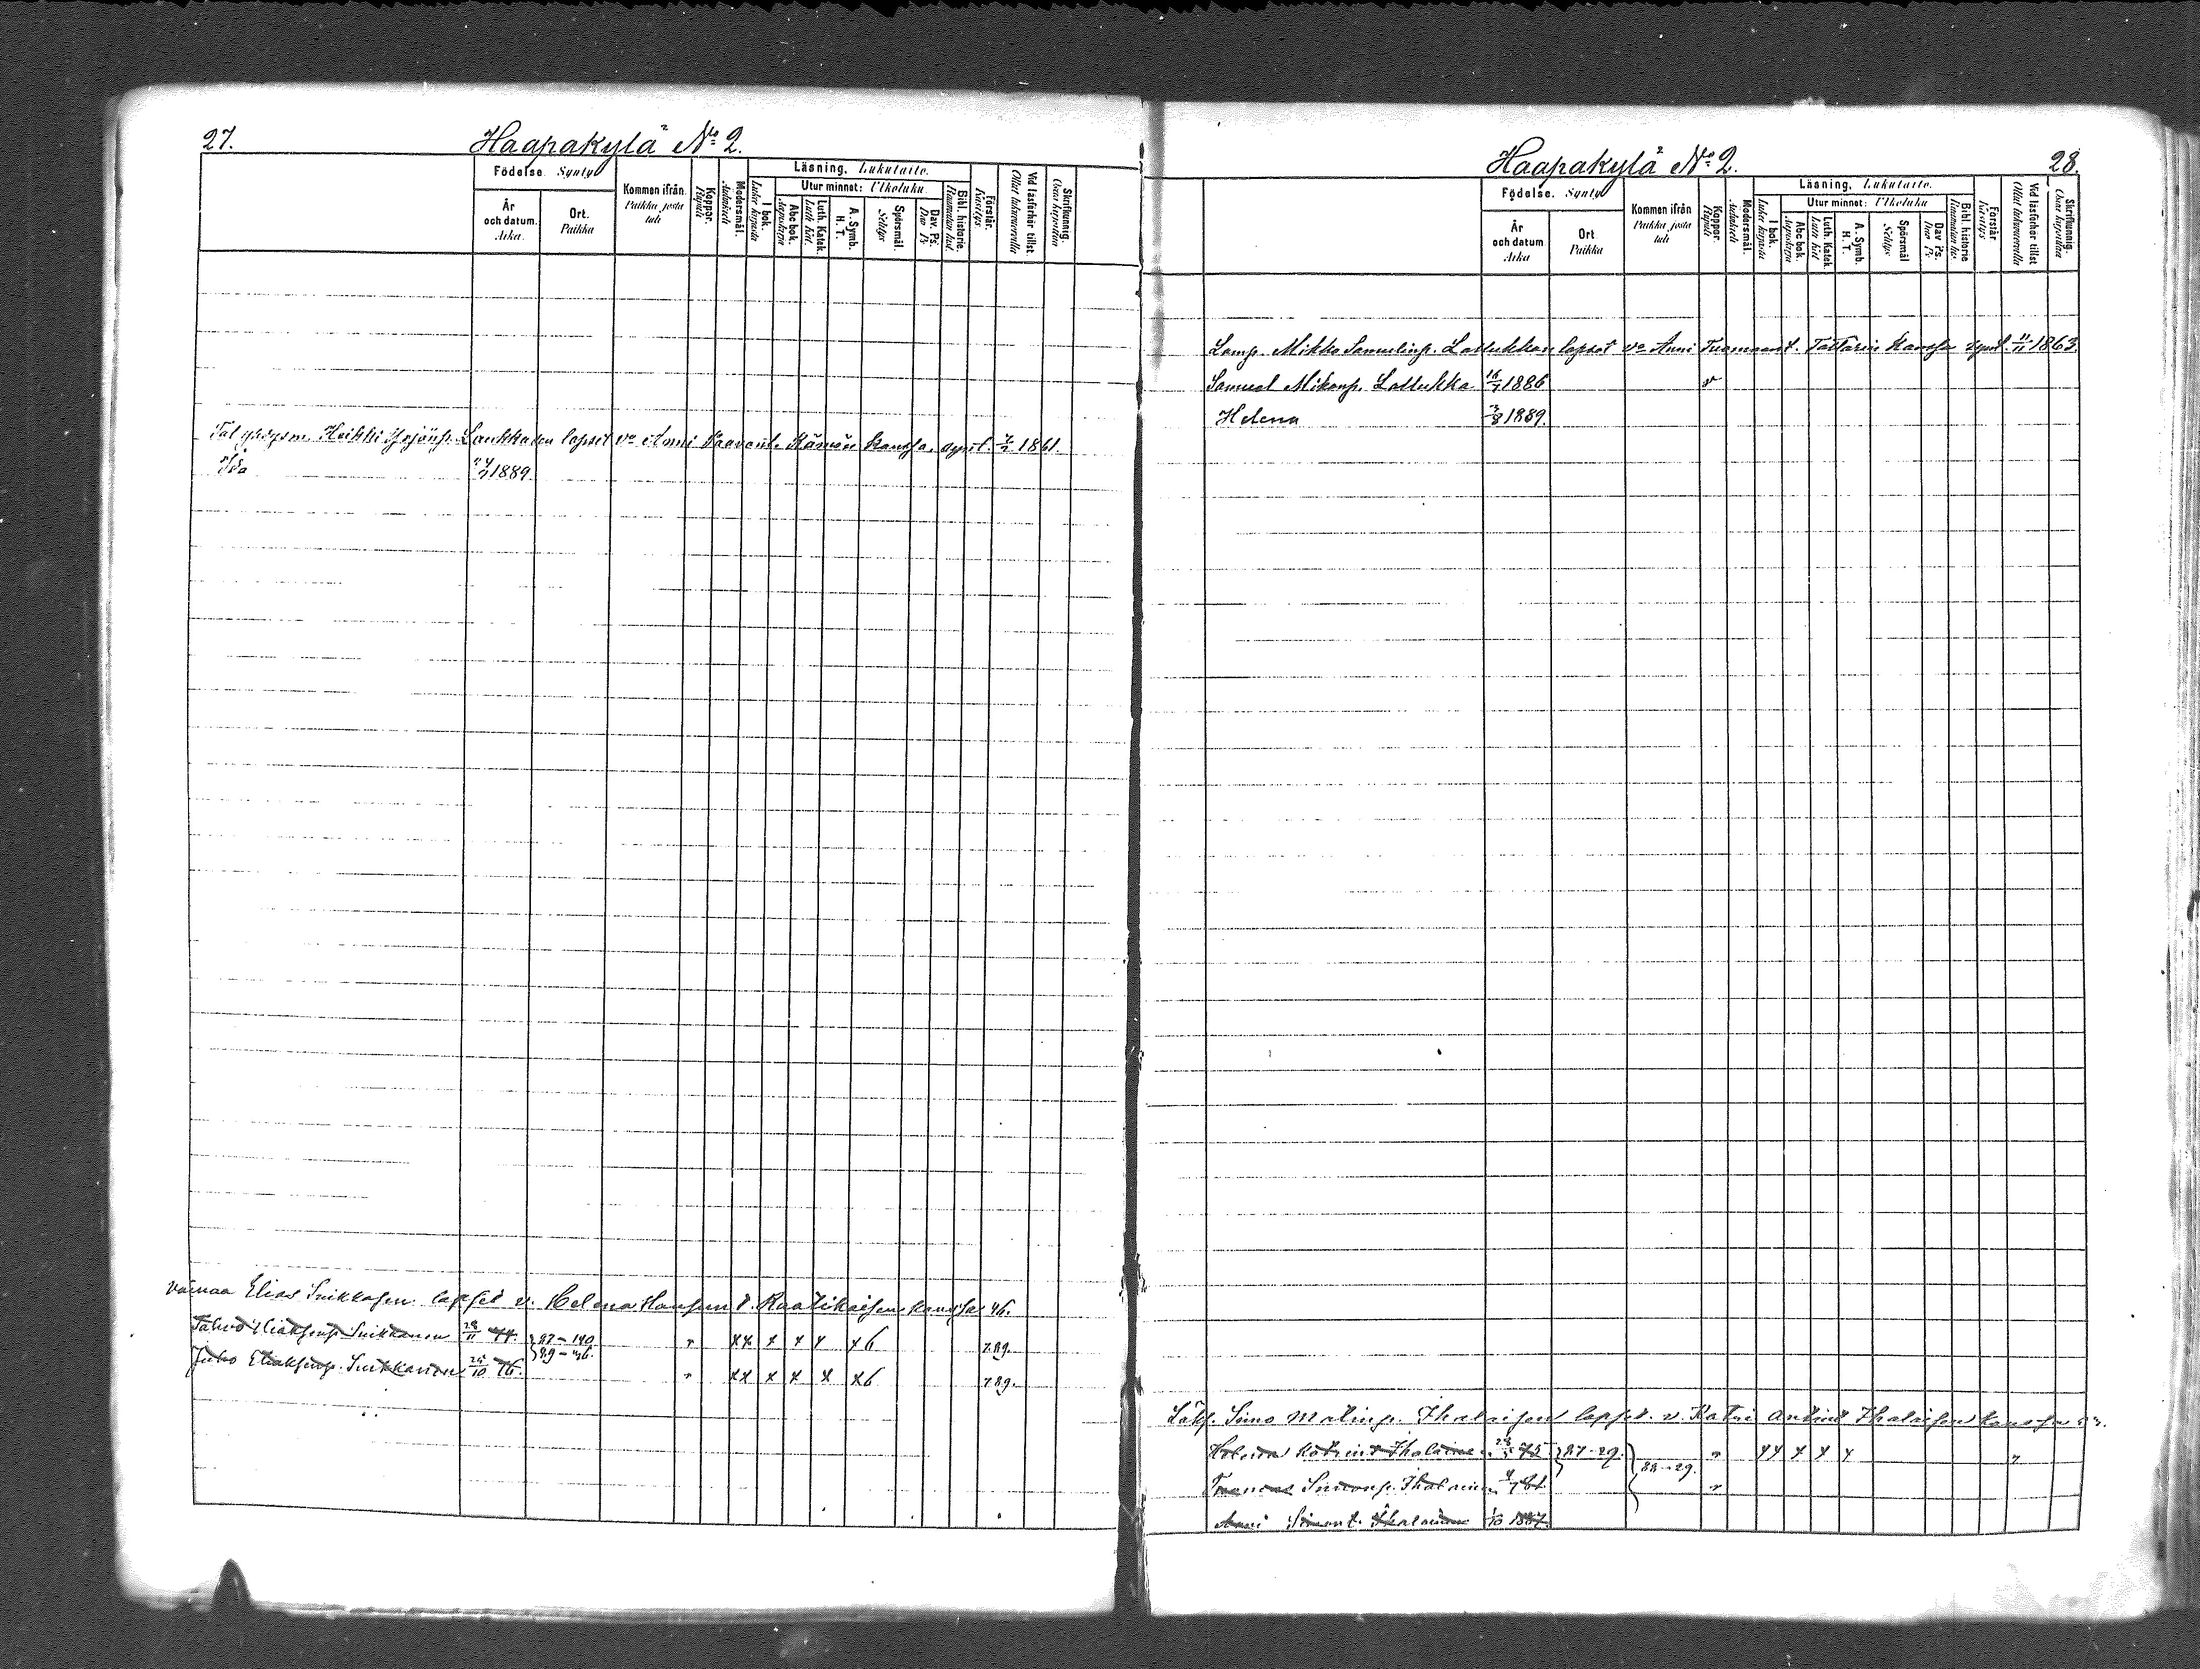 27.
Haapakylä No 2.
Födelse. Synty
Kommen ifrån.
Paikka josta
tuli
Koppor.
Rupuli
Modersmål.
Äidinkieli
Läsning. Lukutaito.
I bok.
Luku kirjasta
Utur minnet: Ulkoluku.
Abc bok.
Aapiskirja
Luth. Katek.
Luth. Kat.
A. Symb.
H. T.
Spörsmål.
Selitys
Dav. Ps.
Dav. Ps.
Bibl. historie.
Raamatun hist.
Förstår.
Käsitys
Vid läsförhör tillst.
Ollut lukuvuorolla
Skrifkunnig.
Osaa kirjoittaa
År
och datum.
Aika.
Ort.
Paikka
Heikki Yrjönp. Laukkasen lapset vo Anni Paavont. Kämön kanssa, synt. 1861.
Ida 1889.
vainaa Elias Suikkasen lapset v. Helena Hansun t. Raatikaisen kanssa 46.
Taavo Eliaksenp. Suikkanen 28/11 74. 87-140 " xx x x x x6 x89.
89-
Juho Eliaksenp. Suikkanen 25/10 76. " xx x x x x6 x89.
Haapakylä No 2.
28.
Födelse. Synty
Kommen ifrån
Paikka josta
tuli
Koppor.
Rupuli
Modersmål.
Äidinkieli
Läsning. Lukutaito.
I bok.
Luku kirjasta
Utur minnet: Ulkoluku
Abc bok.
Aapiskirja
Luth. Katek
Luth Kat
A. Symb.
H. T.
Spörsmål
Selitys
Dav Ps.
Dav Ps.
Bibl. historie
Raamatun his.
Förstår
Käsitys
Vid läsförhör tillst
Ollut lukuvuorolla
Skrifkunnig.
Osaa kirjoittaa
År
och datum
Aika
Ort
Paikka
Lamp. Mikko Samulinp. Lattukkan lapset vo Anni Tuomaant. Tattarin kanssa synt. 11/11 1863.
Samuel Mikonp. Lattukka 1886
Helena 1889.
Simo Matinp. Ihalaisen lapset v. Katri Antint Ihalaisen kanssa
Helena Ihalaine 75. 87-29. " xx x x x "
88-29.
Simonp. Ihalainen 81 "
Anni Simont. Ihalainen 1/10 1887.